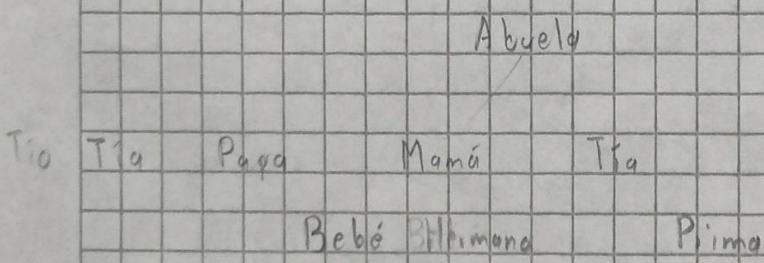 Abuela
Tio Tía Papa Mamá Tía
Bebé Hermana Prima